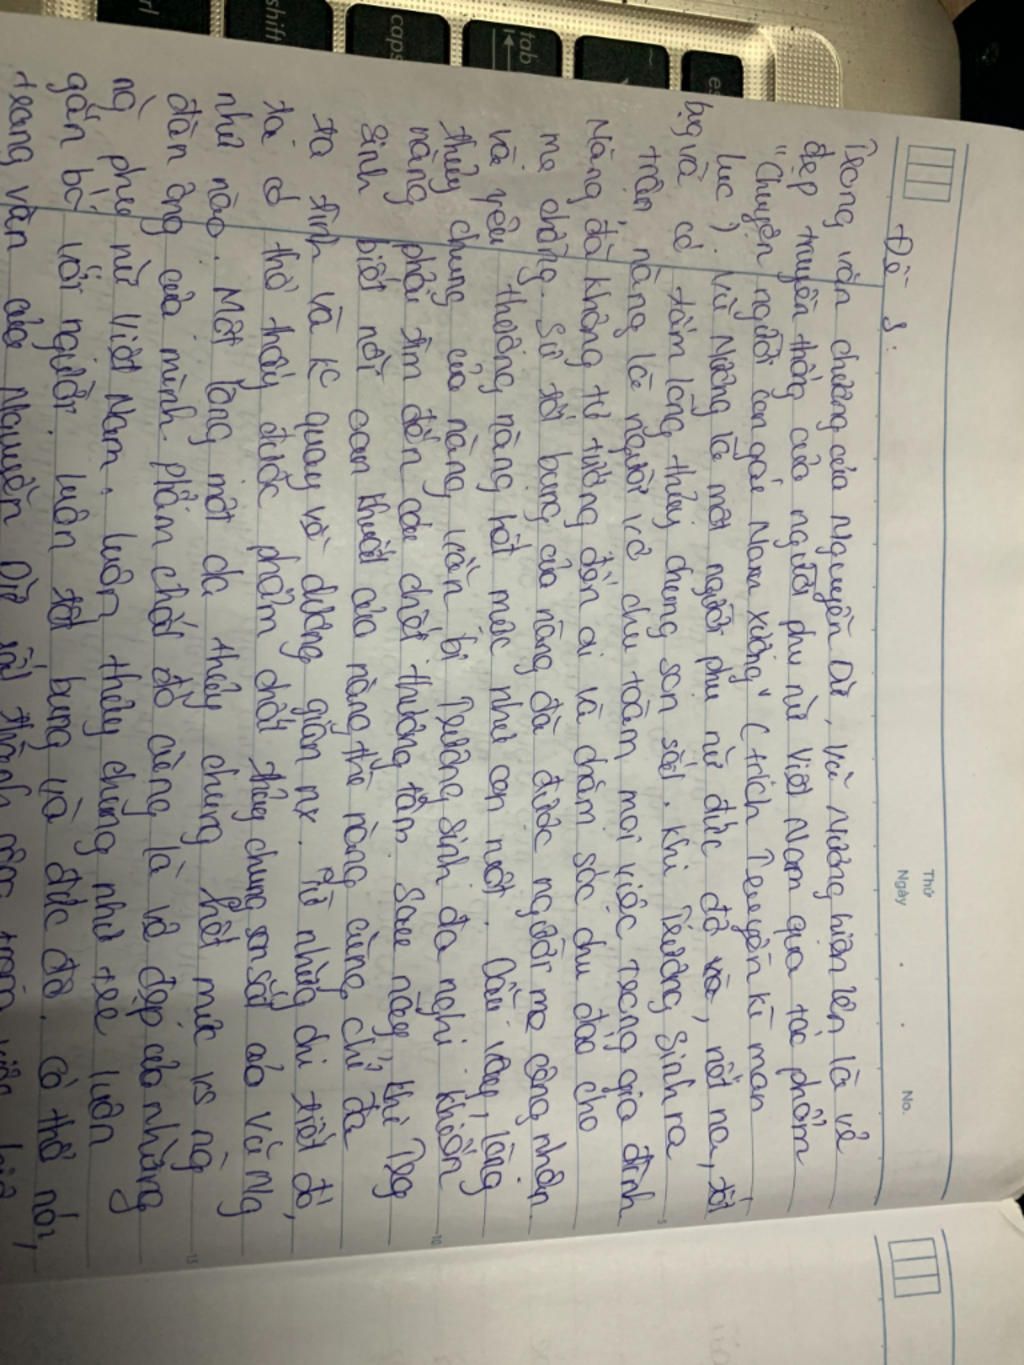 Thứ
Ngày . . No.
Đề 8:
Trong văn chương của Nguyễn Dữ, Vũ Nương hiện lên là vẻ
đẹp truyền thống của người phụ nữ Việt Nam qua tác phẩm
"Chuyện người con gái Nam Xương" (trích Truyền kì mạn
lục). Vũ Nương là một người phụ nữ đức độ, nết na, tốt
bụng và có tấm lòng thủy chung son sắt. Khi Trương Sinh ra
trận, nàng là người vợ chu toàn mọi việc trong gia đình
Nàng đã không tơ tưởng đến ai và chăm sóc chu đáo cho
mẹ chồng. Sự tốt bụng của nàng đã được người mẹ công nhận
và yêu thương nàng hết mức như con ruột. Dẫu vậy, lòng
thủy chung của nàng vẫn bị Trương Sinh đa nghi khiến
nàng phải tìm đến cái chết thương tâm. Sau này khi Trg
Sinh biết nỗi oan khuất của nàng thì nàng cũng chỉ đa
tạ tình và k quay về dương gian nx. Từ những chi tiết đó,
ta có thể thấy được phẩm chất thủy chung son sắt của Vũ Ng
như nào. Một lòng một dạ thủy chung hết mức vs ng
đàn ông của mình. Phẩm chất đó cũng là vẻ đẹp của những
ng phụ nữ Việt Nam, luôn thủy chung như
gắn bó với người, luôn tốt bụng và đức độ. Có thể nói,
trang văn của Nguyễn Dữ rất thành công
tab
caps
shift